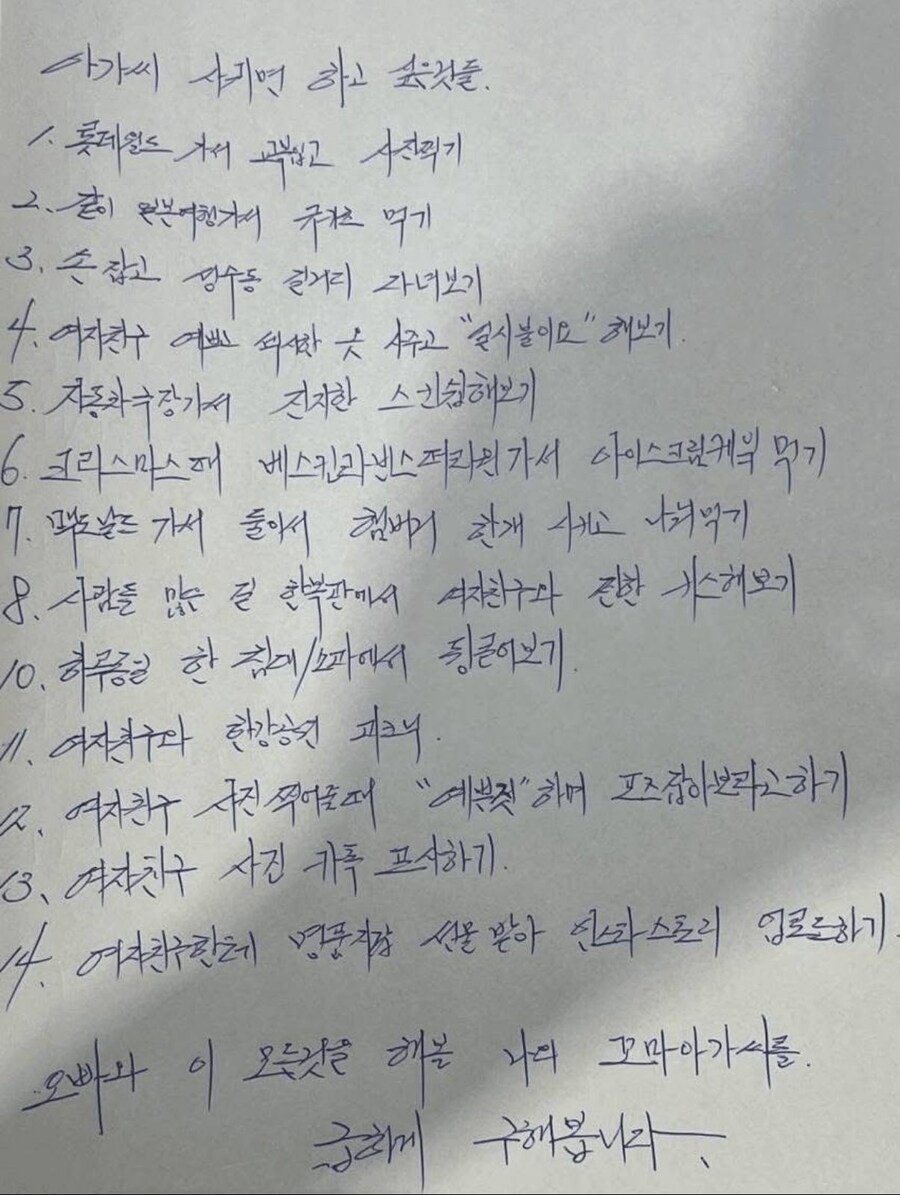 아가씨 사귀면 하고 싶은것들.
1. 롯데월드 가서 교복입고 사진찍기
2. 같이 일본여행가서 규카츠 먹기
3. 손잡고 성수동 길거리 다녀보기
4. 여자친구 예쁘고 섹시한 옷 사주고 "일시불이요" 해보기.
5. 자동차극장가서 진지한 스킨쉽해보기
6. 크리스마스때 베스킨라빈스써리원가서 아이스크림케익 먹기
7. 맥도날드 가서 둘이서 햄버거 한개 시키고 나눠먹기
8. 사람들 많은 길 한복판에서 여자친구와 진한 키스해보기
10. 하루종일 한 침대/소파에서 뒹굴어보기.
11. 여자친구와 한강공원 피크닉.
12. 여자친구 사진 찍어줄때 "예쁜짓"하며 포즈잡아보라고하기
13. 여자친구 사진 카톡 프사하기.
14. 여자친구한테 명품지갑 선물 받아 인스타스토리 업로드하기.
오빠와 이 모든것을 해볼 나의 꼬마아가씨를.
급하게 구해봅니다.